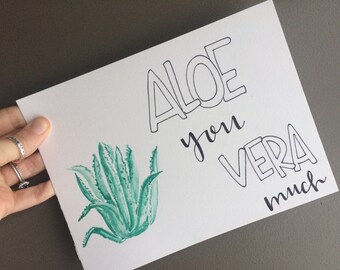 ALOE
you
VERA
much